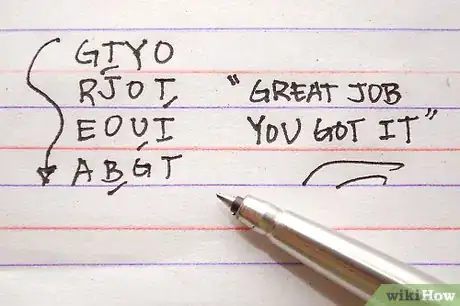 GTYO
RJOT
EOUI
ABGT
"GREAT JOB
YOU GOT IT"
wikiHow